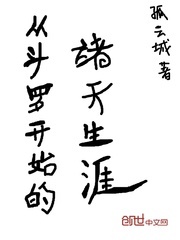 从斗罗开始的
诸天生涯
孤云城 著
创世中文网